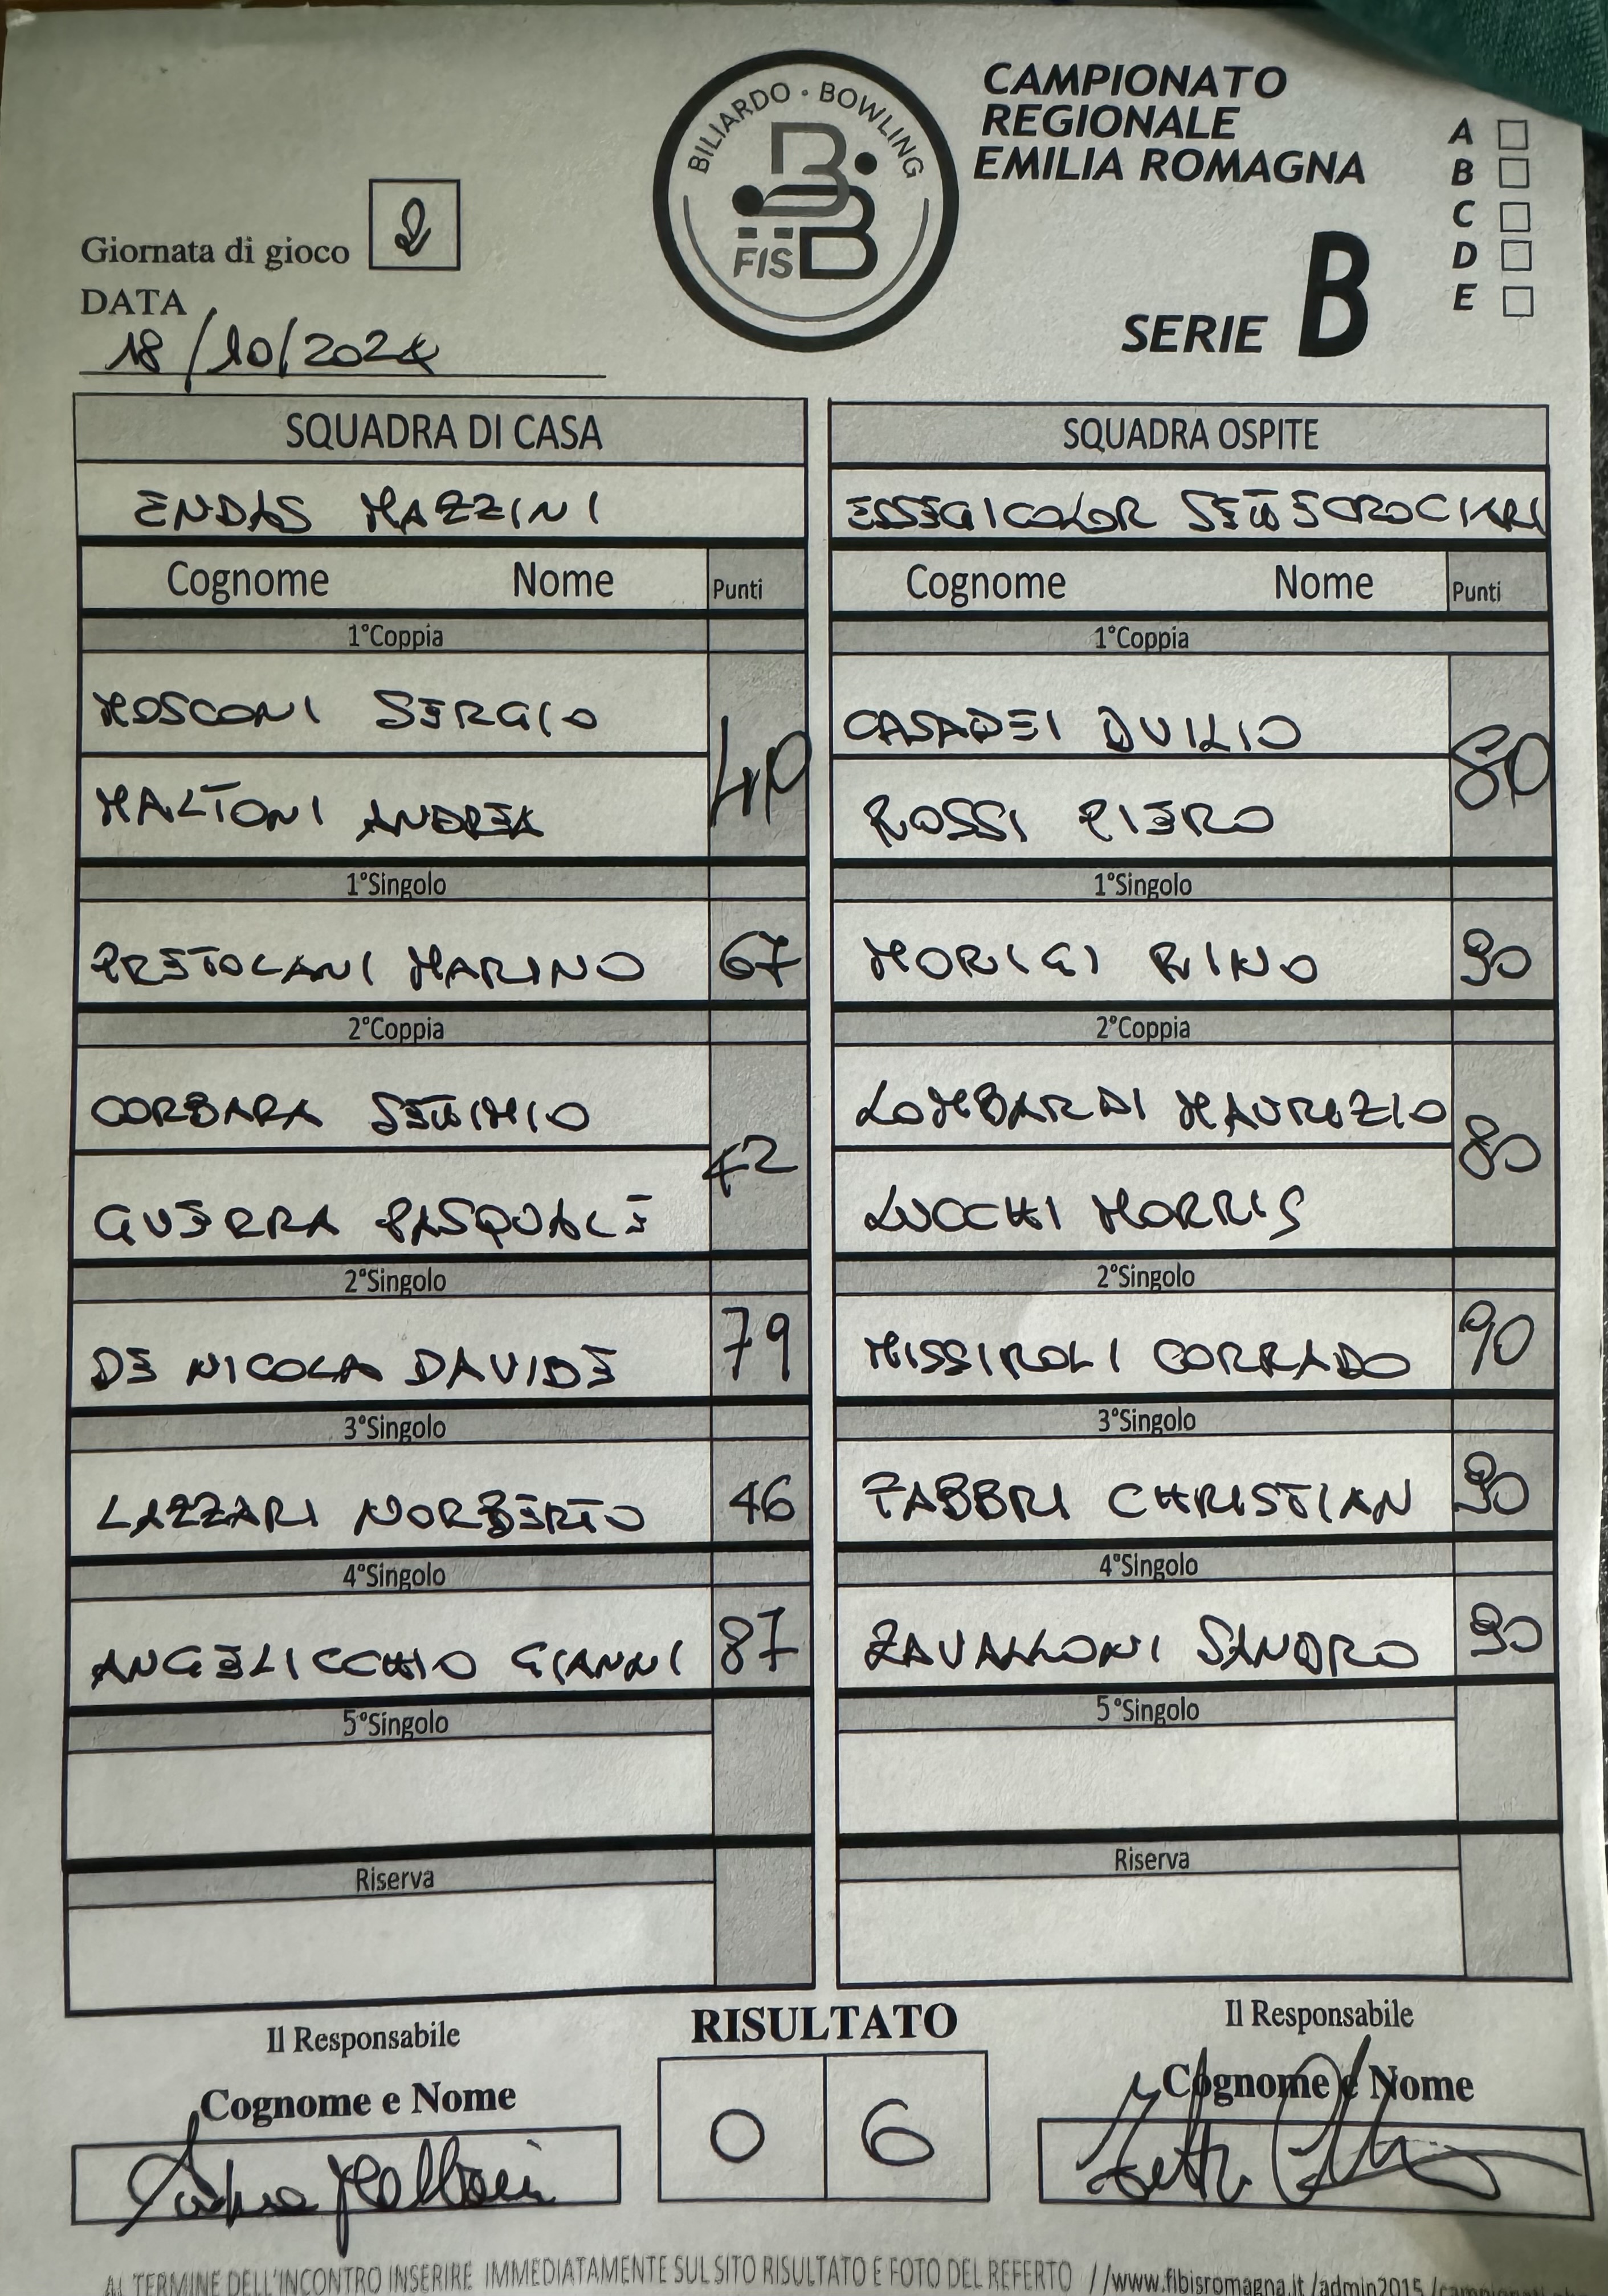 BILIARDO · BOWLING
FISBB
CAMPIONATO
REGIONALE
EMILIA ROMAGNA
SERIE B
A
B
C
D
E
Giornata di gioco 2
DATA
18/10/2024
SQUADRA DI CASA SQUADRA OSPITE
ENDAS MAZZINI ESSEGICOLOR SETTECROCIARI
Cognome Nome Punti Cognome Nome Punti
1°Coppia 1°Coppia
MOSCONI SERGIO CASADEI DUILIO
40 80
MALTONI ANDREA ROSSI PIERO
1°Singolo 1°Singolo
PRETOLANI MARINO 67 MORIGI RINO 90
2°Coppia 2°Coppia
CORBARA SETTIMIO LOMBARDI MAURIZIO
42 80
GUERRA PASQUALE LUCCHI MORRIS
2°Singolo 2°Singolo
DE NICOLA DAVIDE 79 MISSIROLI CORRADO 90
3°Singolo 3°Singolo
LAZZARI NORBERTO 46 FABBRI CHRISTIAN 90
4°Singolo 4°Singolo
ANGELICCHIO GIANNI 87 ZAVALLONI SANDRO 90
5°Singolo 5°Singolo
Riserva Riserva
Il Responsabile RISULTATO Il Responsabile
Cognome e Nome Cognome e Nome
0 6
AL TERMINE DELL'INCONTRO INSERIRE IMMEDIATAMENTE SUL SITO RISULTATO E FOTO DEL REFERTO //www.fibisromagna.it/admin2015/